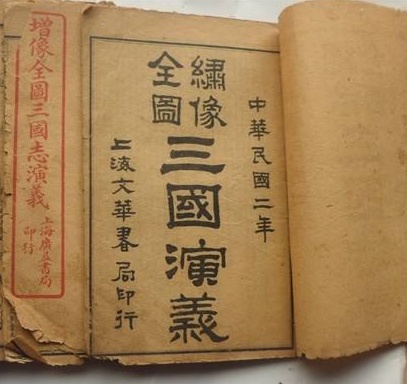 中華民國二年
繡像
全圖
三國演義
上海文華書局印行
增像全圖三國志演義
上海廣益書局
印行